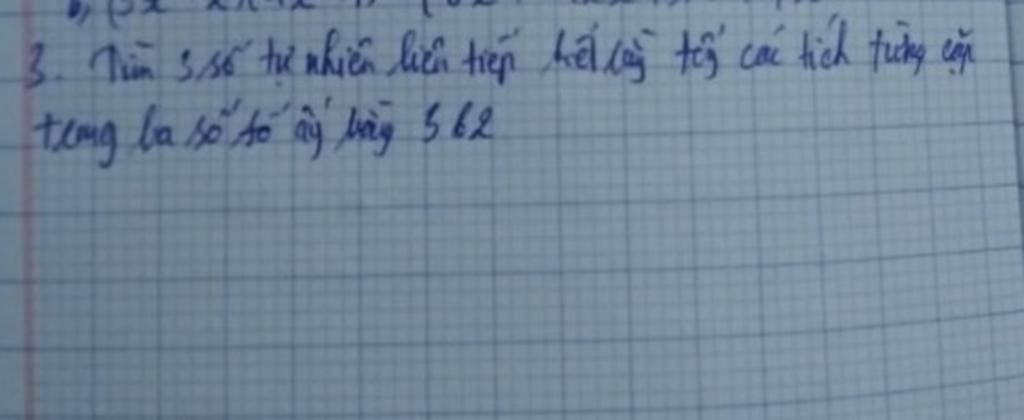 3. Tìm 3 số tự nhiên liên tiếp biết rằng tổng các tích từng cặp
trong ba số số ấy bằng 362